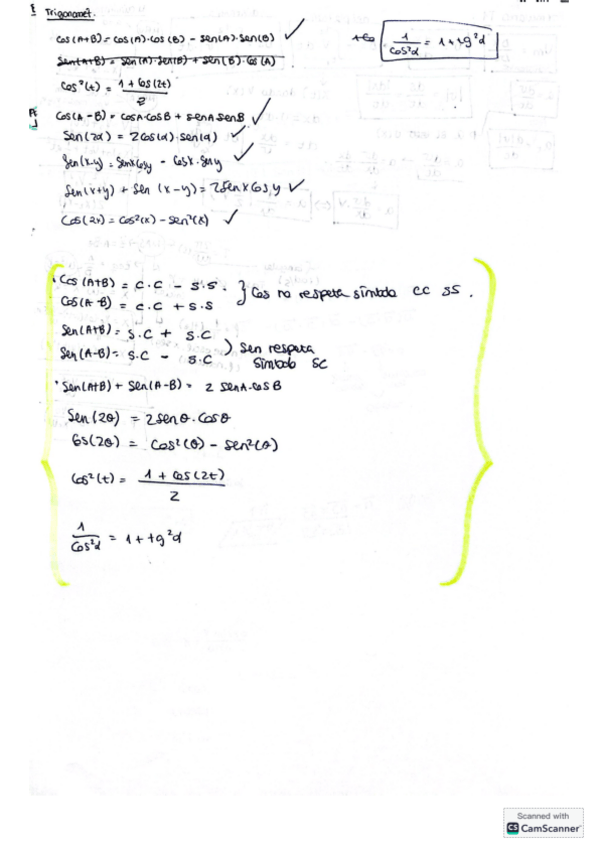 Trigonomet.
Cos(A+B) = cos(A)·cos(B) - sen(A)·sen(B) ✓
+Co 1/cos²α = 1 + tg²α
Sen(A+B) = Sen(A)·Sen(B) + Sen(B)·Cos(A)
Cos²(t) = 1 + Cos(2t) / 2
Cos(A - B) = cosA·cosB + senA senB ✓
Sen(2α) = 2cos(α)·sen(α) ✓
Sen(x-y) = senx cosy - cosx·seny ✓
Sen(x+y) + sen (x-y) = 2senx cosy ✓
Cos(2x) = cos²(x) - sen²(x) ✓
Cos(A+B) = c.c - s.s. } Cos no respeta símbolo cc ss.
Cos(A-B) = c.c + s.s
Sen(A+B) = s.c + s.c
Sen(A-B) = s.c - s.c ) Sen respeta
símbolo sc
Sen(A+B) + Sen(A-B) = 2 senA·cosB
Sen(2θ) = 2senθ·cosθ
Cos(2θ) = cos²(θ) - sen²(θ)
Cos²(t) = 1 + cos(2t) / 2
1/cos²α = 1 + tg²α
Scanned with
CS CamScanner